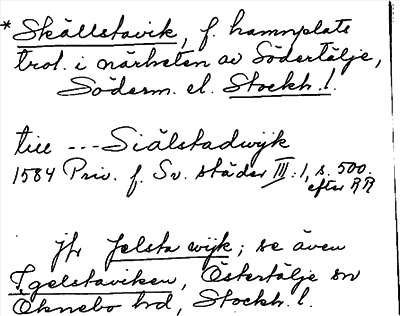 * Skällstavik, f. hamnplats
trol. i närheten av Södertälje,
Söderm. el. Stockh. l.
till --- Siälstadwijk
1584 Priv. f. Sv. städer III: 1, s. 500.
efter RR
jfr Jelsta wijk; se även
Igelstaviken, Östertälje sn
Öknebo hd, Stockh. l.